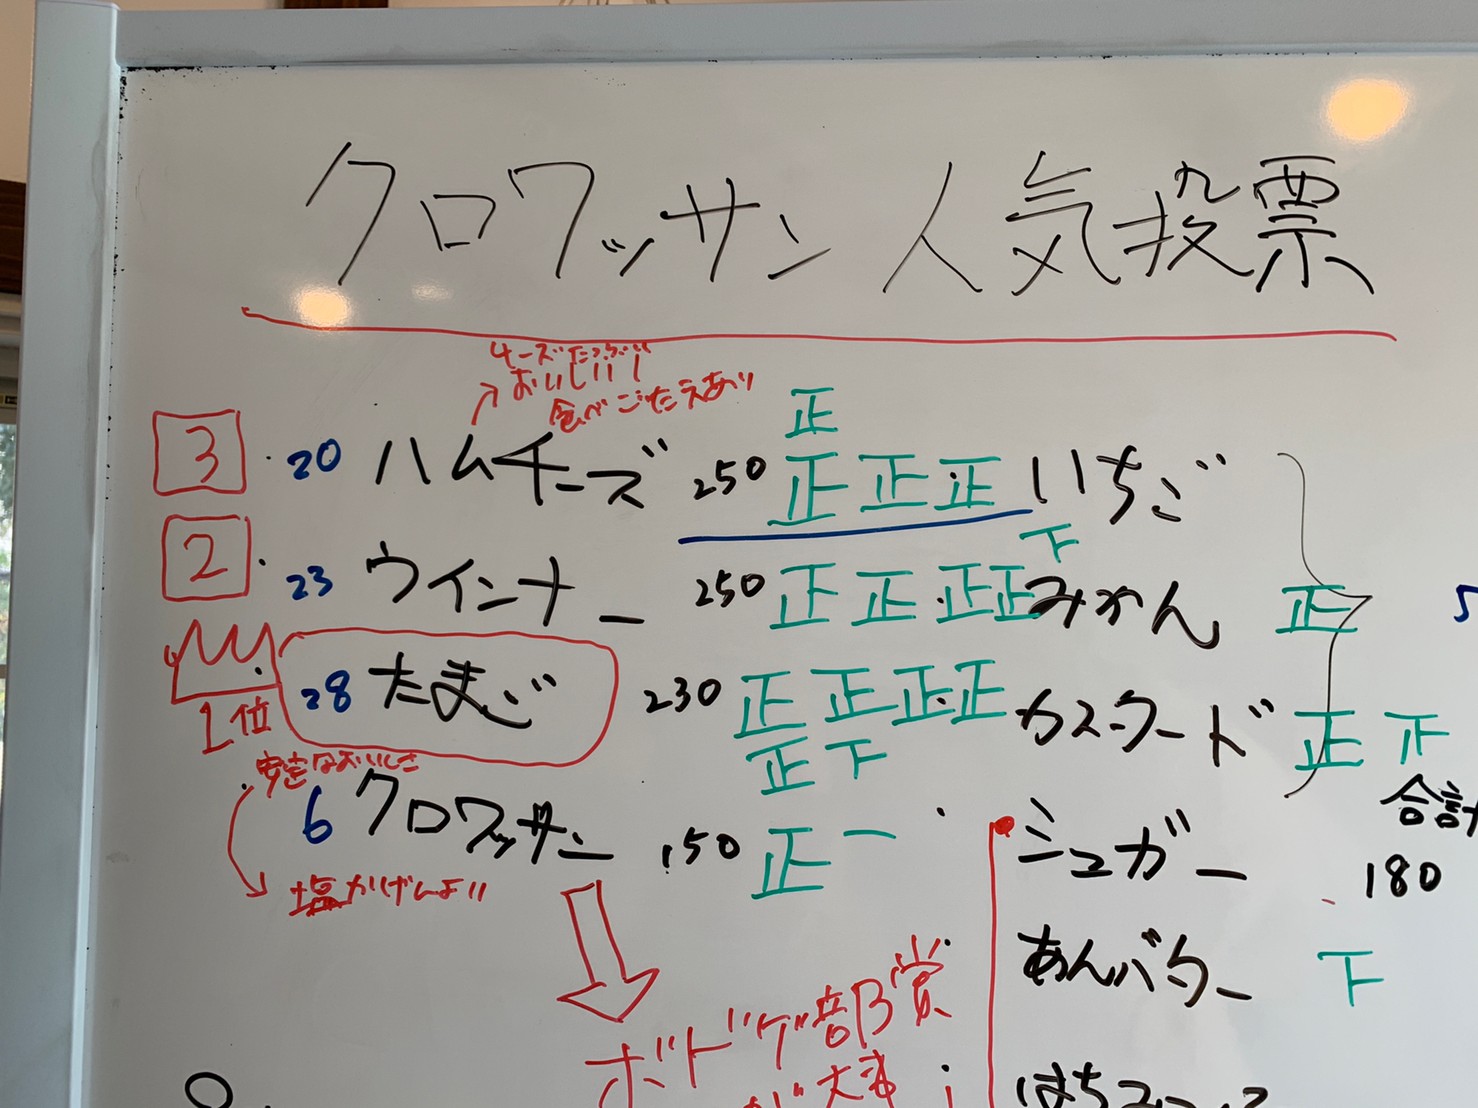 クロワッサン 人気投票
チーズたっぷり
おいしい!
食べごたえあり
正
3 20 ハムチーズ 250 正 正 正 いちご
下
2 23 ウインナー 250 正 正 正 正 みかん 正
1位 28 たまご 230 正 正 正 正 カスタード 正 正
正 下
安定なおいしさ
6 クロワッサン 150 正 一
塩かげんよい
合計
シュガー 180
あんバター 下
ボドゲ部賞